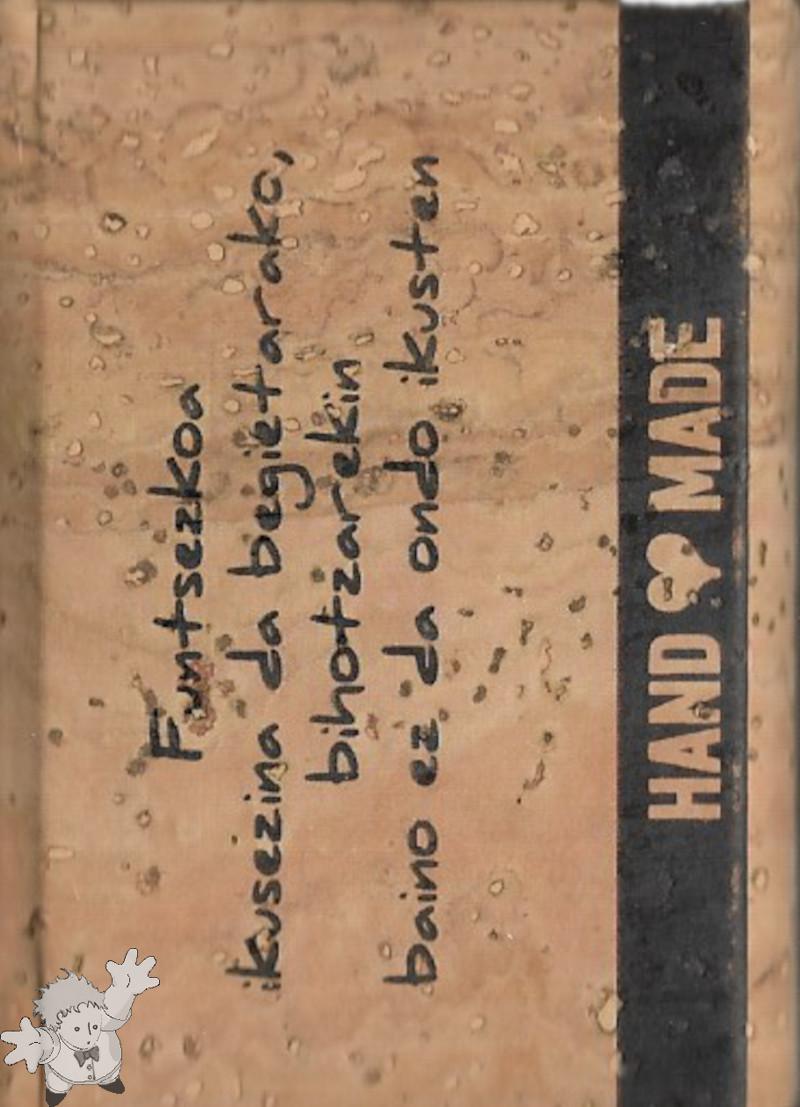 Funtsezkoa
ikusezina da begietarako,
bihotzarekin
baino ez da ondo ikusten
HAND MADE